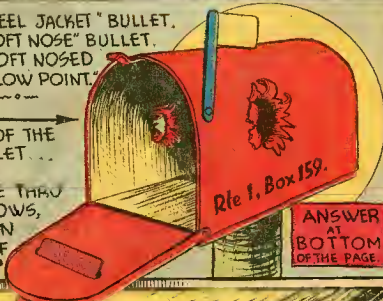 EEL JACKET" BULLET.
OFT NOSE" BULLET.
OFT NOSED
LOW POINT."
OF THE
LET...
E THRU
OWS,
N
F
Rte 1, Box 159.
ANSWER
AT
BOTTOM
OF THE PAGE.